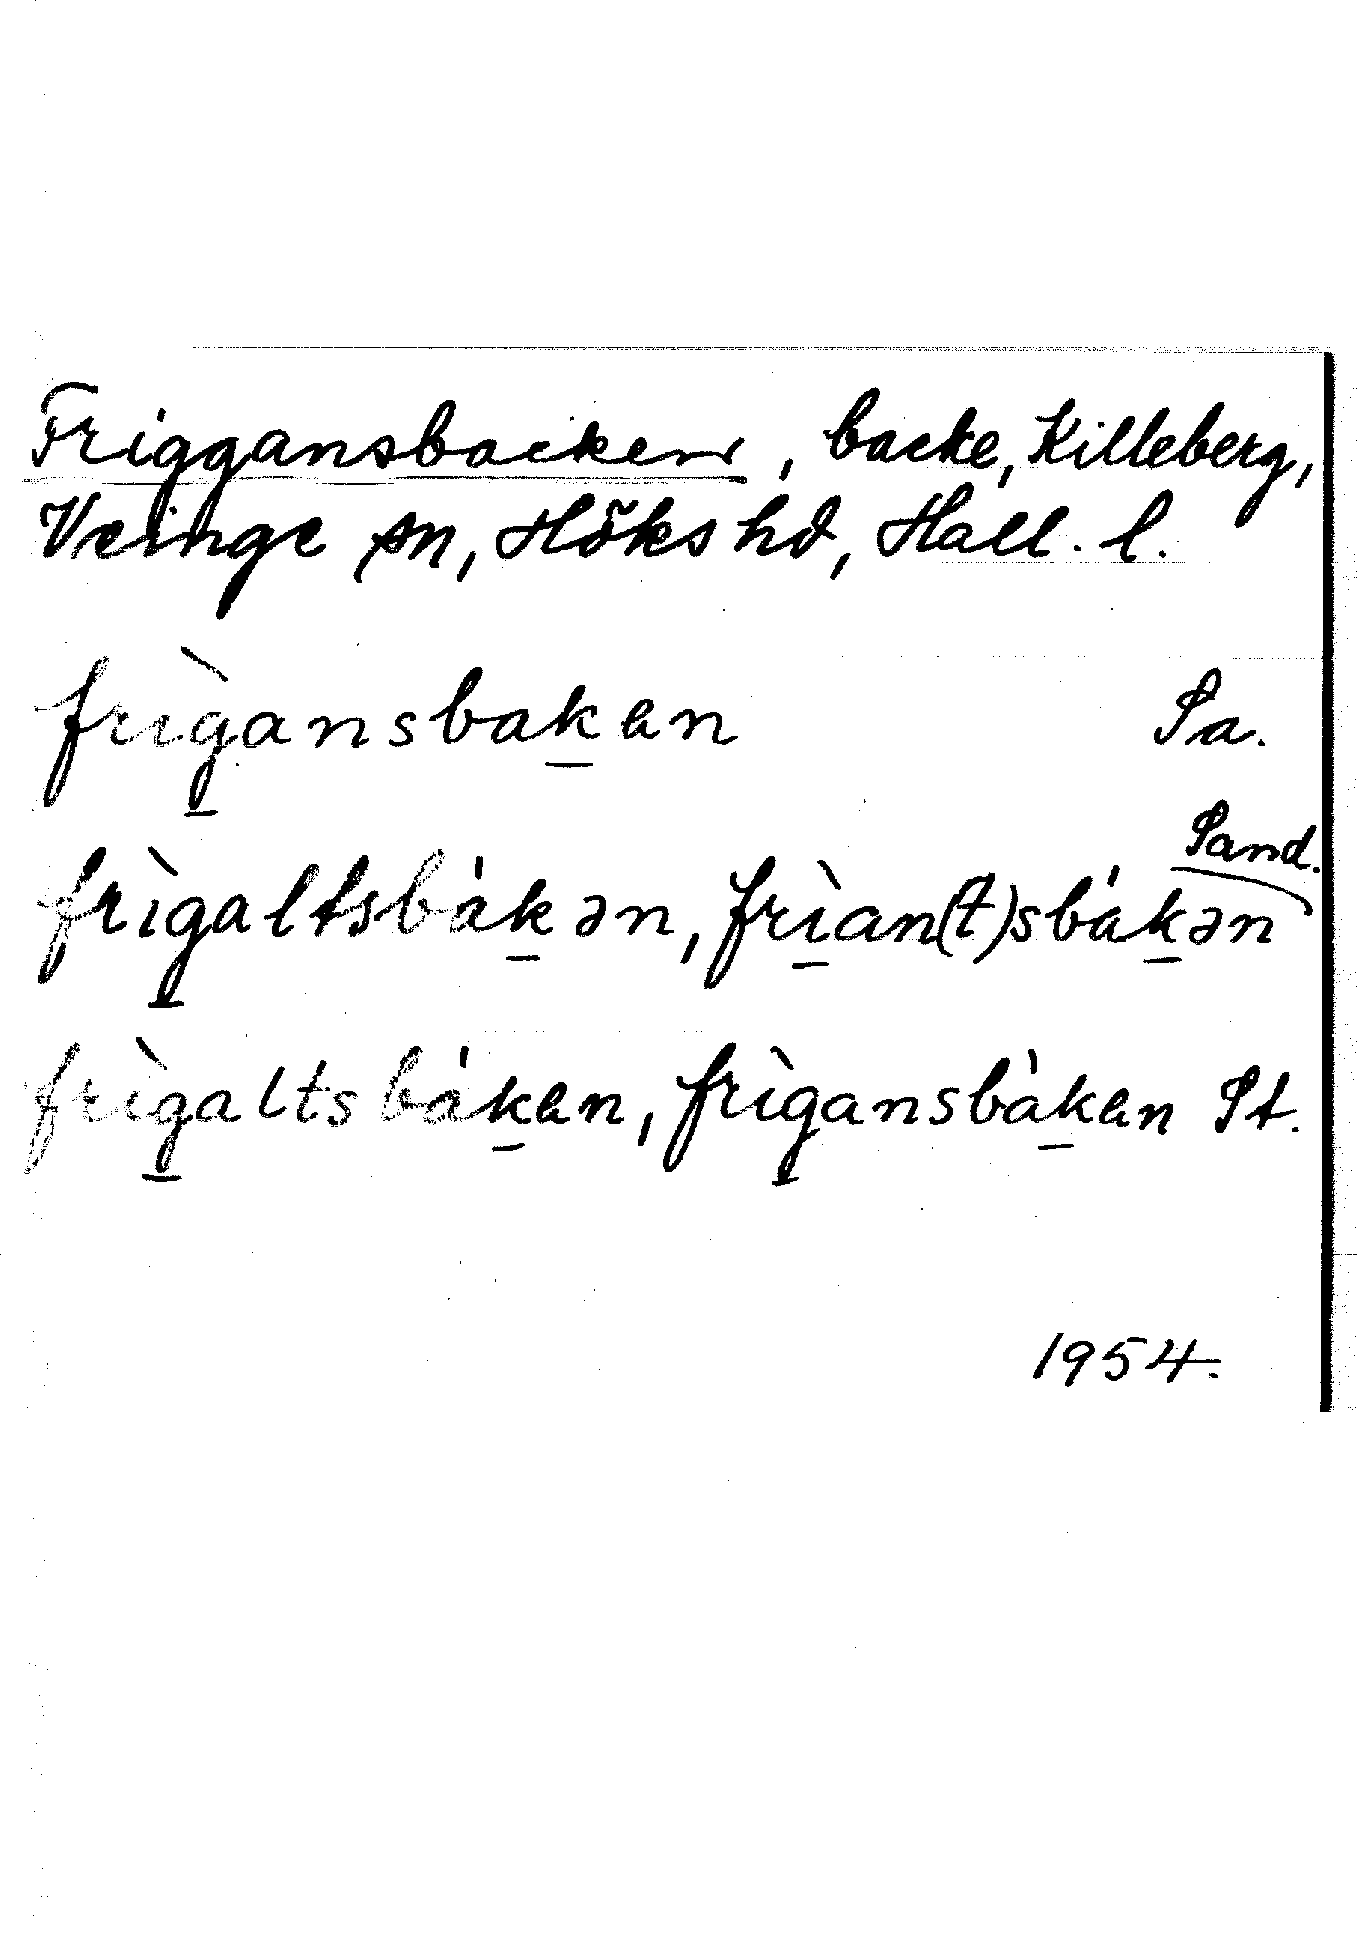 Friggansbacken, backe, Killeberg,
Veinge sn, Höks hd, Hall. l.
frìg̲ansbak̲an Sa.
Sand.
frìg̲altsbák̲ən, frì̲an(t)sbák̲ən
frìg̲altsbák̲an, frìg̲ansbák̲an St.
1954.